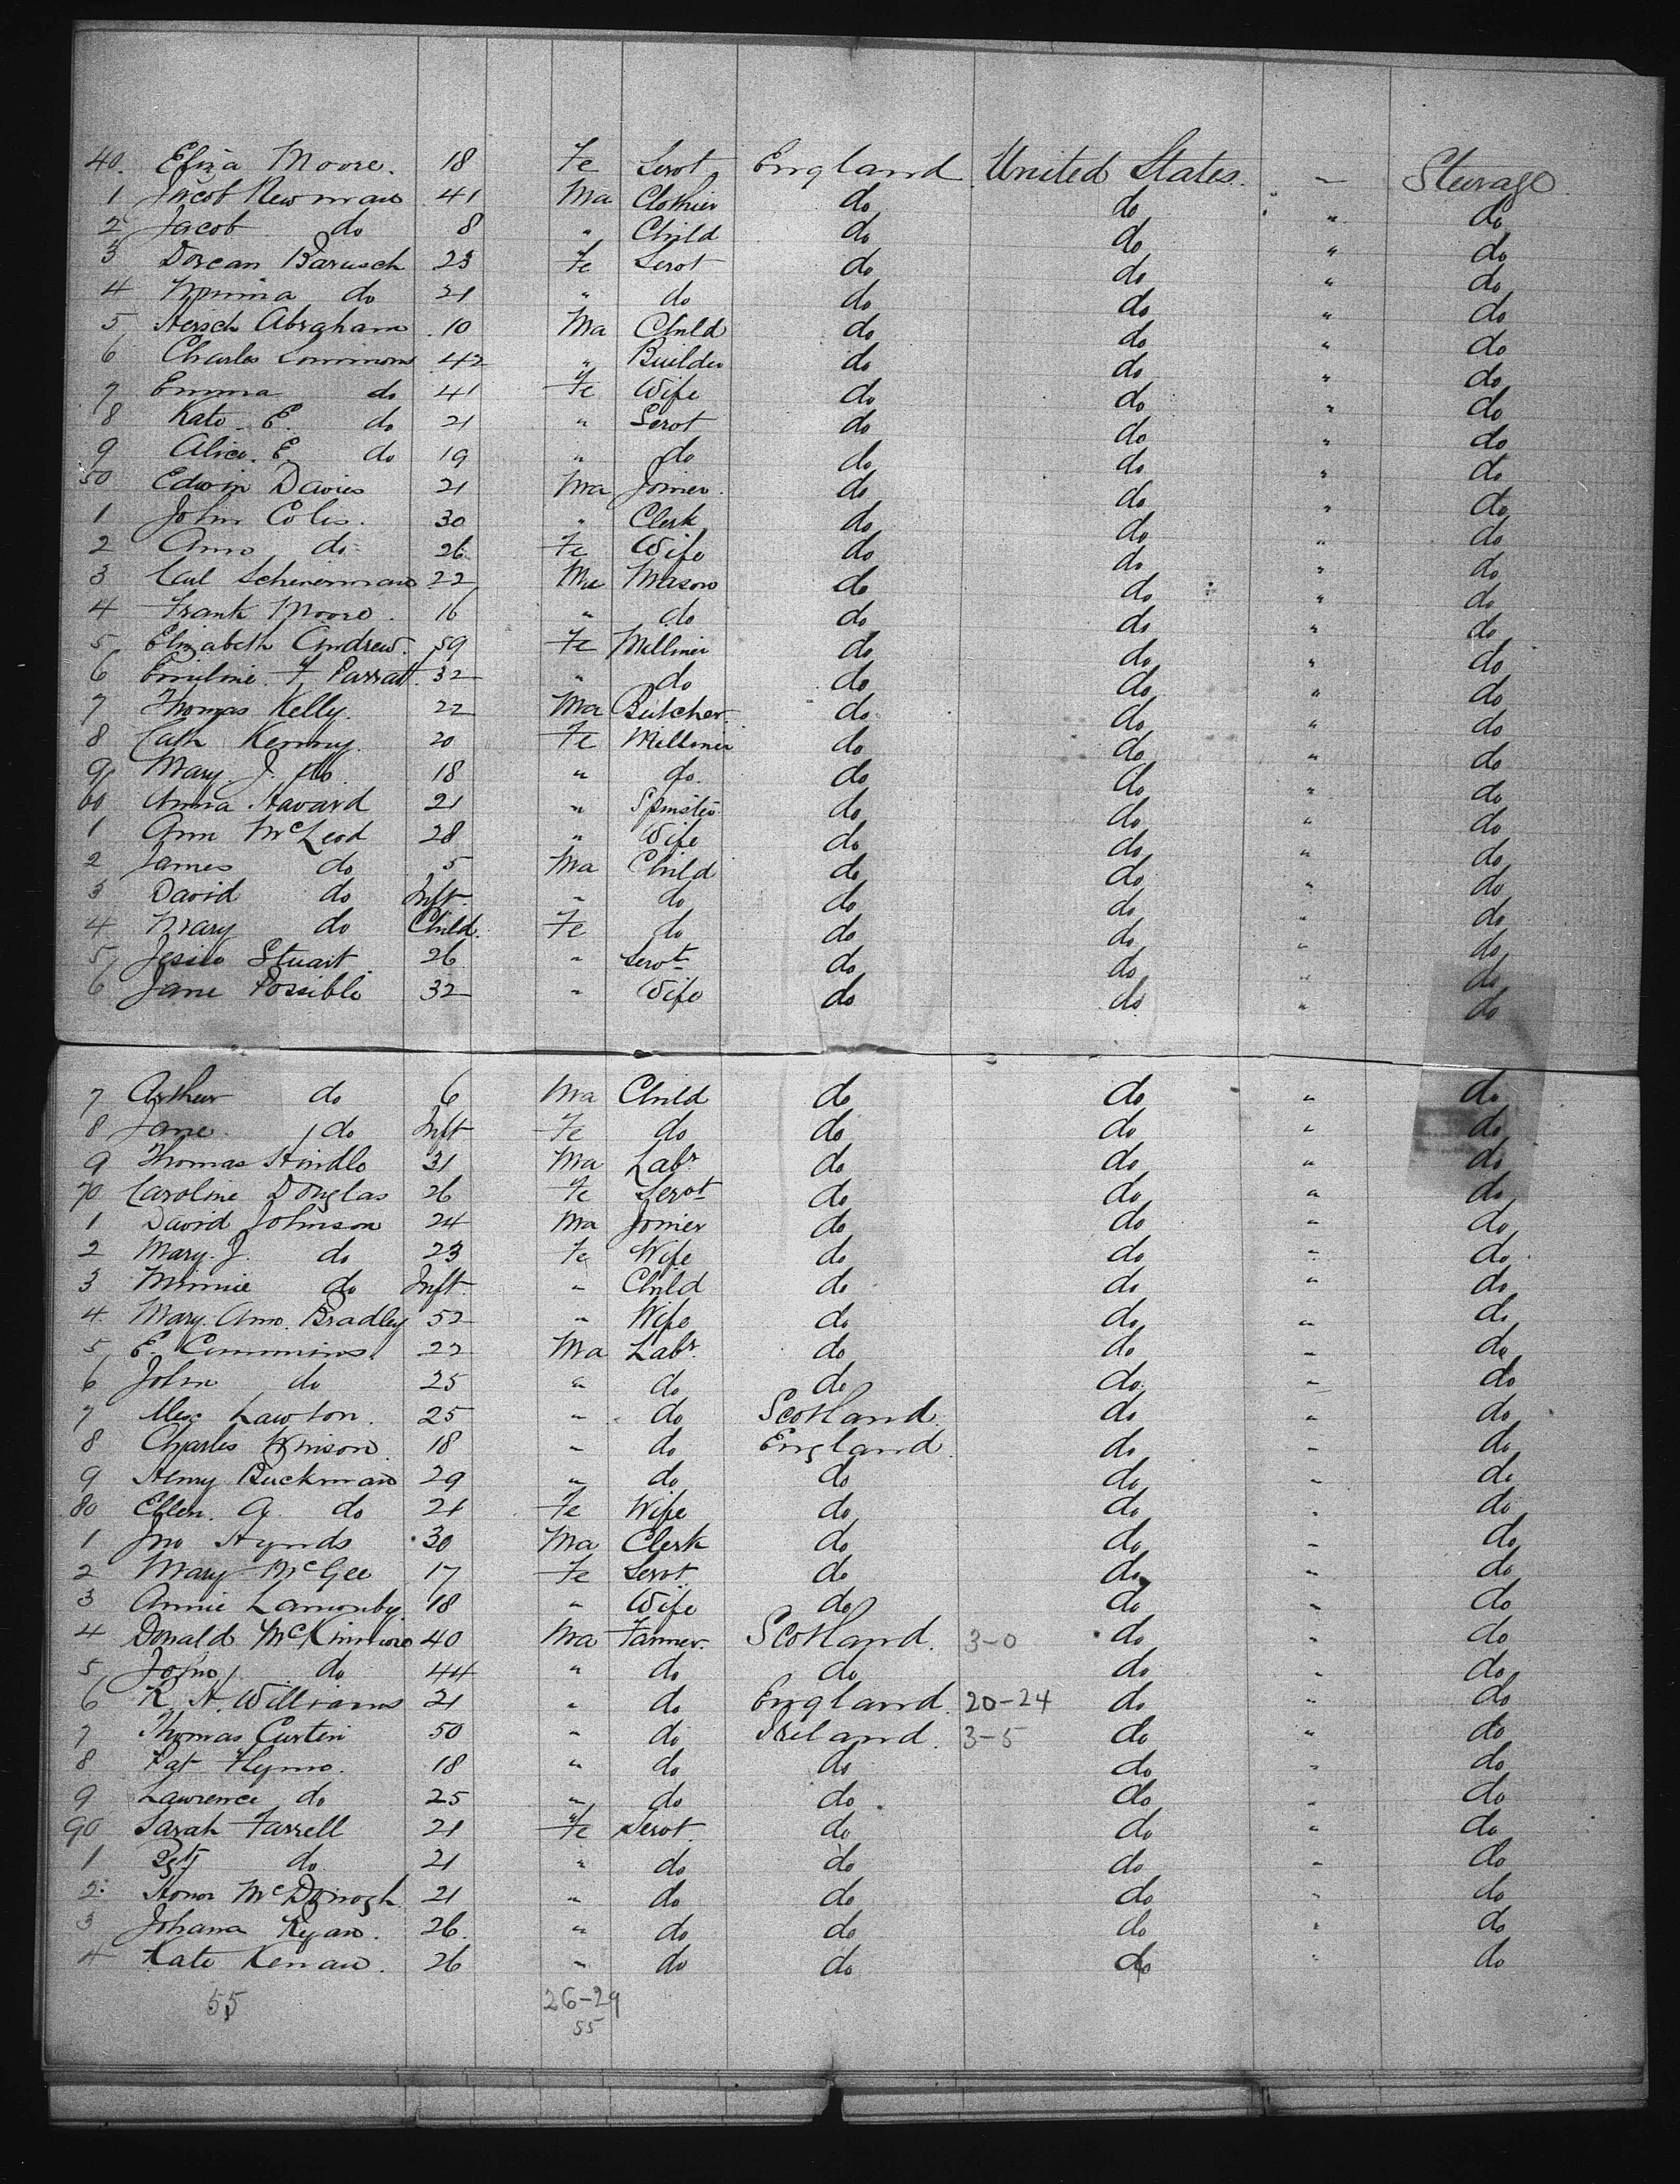 40. Eliza Moore. 18 Fe Servt England. United States. " Steerage
1 Jacob Newman 41 Ma Clothier do do " do
2 Jacob do 8 " Child do do " do
3 Dorcan Barusch 23 Fe Servt do do " do
4 do 21 " do do do " do
5 Hersch Abraham 10 Ma Child do do " do
6 Charles 42 " Builder do do " do
7 Emma do 41 Fe Wife do do " do
8 Kate E. do 21 " Servt do do " do
9 Alice. E. do 19 " do do do " do
50 Edwin Davies 21 Ma Joiner. do do " do
1 John Coles. 30 " Clerk do do " do
2 Ann do 26 Fe Wife do do " do
3 Carl 22 Ma Mason do do " do
4 Frank Moore. 16 " do do do " do
5 Elizabeth Andrew. 59 Fe Milliner do do " do
6 Emiline. F. Parratt. 32 " do do do " do
7 Thomas Kelly. 22 Ma Butcher. do do " do
8 Cath Kenny. 20 Fe Milliner do do " do
9 Mary. J. do 18 " do. do do " do
60 Anna Havard 21 " Spinster do do " do
1 Ann McLeod 28 " Wife do do " do
2 James do 5 Ma Child do do " do
3 David do Inft. " do do do " do
4 Mary do Child. Fe do do do " do
5 Jessie Stuart. 26 " Servt do do " do
6 Jane Possible 32 " Wife do do " do
7 Arthur do 6 Ma Child do do " do
8 Jane do Inft Fe do do do " do
9 Thomas Hindle 31 Ma Labr do do " do
70 Caroline Douglas 26 Fe Servt do do " do
1 David Johnson 24 Ma Joiner do do " do
2 Mary. J. do 23 Fe Wife do do " do
3 Minnie do Inft. " Child do do " do
4. Mary. Ann. Bradley 52 " Wife do do " do
5 E. Cummins. 22 Ma Labr. do do " do
6 John do 25 " do do do. " do
7 Alex Lawton. 25 " do Scotland. do " do
8 Charles 18 " do England. do " do
9 Henry Buckman 29 " do do do " do
80 Ellen. A. do 21 Fe Wife do do " do
1 Jno Hynds 30 Ma Clerk do do " do
2 Mary McGee 17 Fe Servt do do " do
3 Annie Lamonby. 18 " Wife do do " do
4 Donald McKinnon 40 Ma Farmer. Scotland. 3-0 do " do
5 John do 44 " do do do " do
6 R. H. Williams 21 " do England. 20-24 do " do
7 Thomas Curtin 50 " do Ireland. 3-5 do " do
8 Pat Flynn. 18 " do do do " do
9 Lawrence do 25 " do do do " do
90 Sarah Farrell 21 Fe Servt. do do " do
1 Bgt do 21 " do do do " do
2. Honor McDonogh. 21 " do do do " do
3 Johana Ryan. 26. " do do do " do
4 Kate Kenan. 26 " do do do " do
55 26-29
55